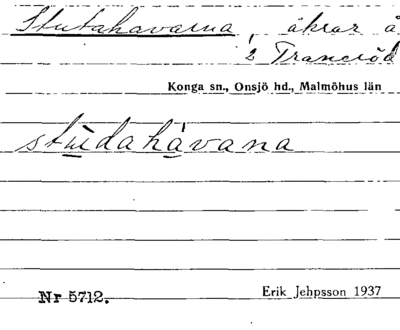 Stutahavarna, åkrar å
2 Traneröd
Konga sn., Onsjö hd., Malmöhus län
stùdahávana
Nr 5712.
Erik Jehpsson 1937